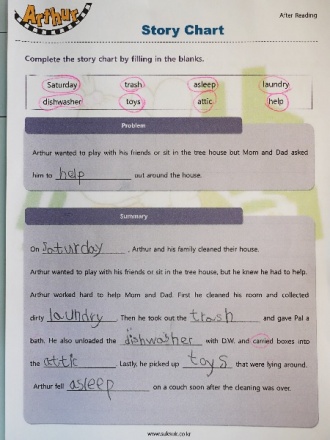 Arthur
After Reading
Story Chart
Complete the story chart by filling in the blanks.
Saturday trash asleep laundry
dishwasher toys attic help
Problem
Arthur wanted to play with his friends or sit in the tree house but Mom and Dad asked
him to help out around the house.
Summary
On Saturday, Arthur and his family cleaned their house.
Arthur wanted to play with his friends or sit in the tree house, but he knew he had to help.
Arthur worked hard to help Mom and Dad. First he cleaned his room and collected
dirty laundry. Then he took out the trash and gave Pal a
bath. He also unloaded the dishwasher with D.W. and carried boxes into
the attic. Lastly, he picked up toys that were lying around.
Arthur fell asleep on a couch soon after the cleaning was over.
www.suksuk.co.kr